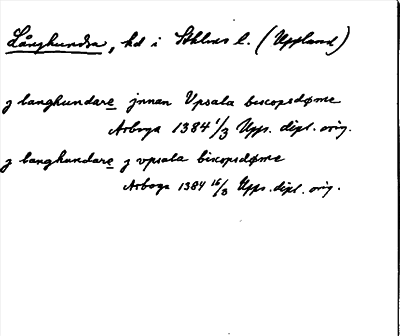 Långhundra, hd i Sthlms l. (Uppland)
j langhundare jnnan Vpsala biscopsdøme
Arboga 1384 1/3 Upps. dipl. orig.
j langhundare j vpsala biscopsdøme
Arboga 1384 16/3 Upps. dipl. orig.